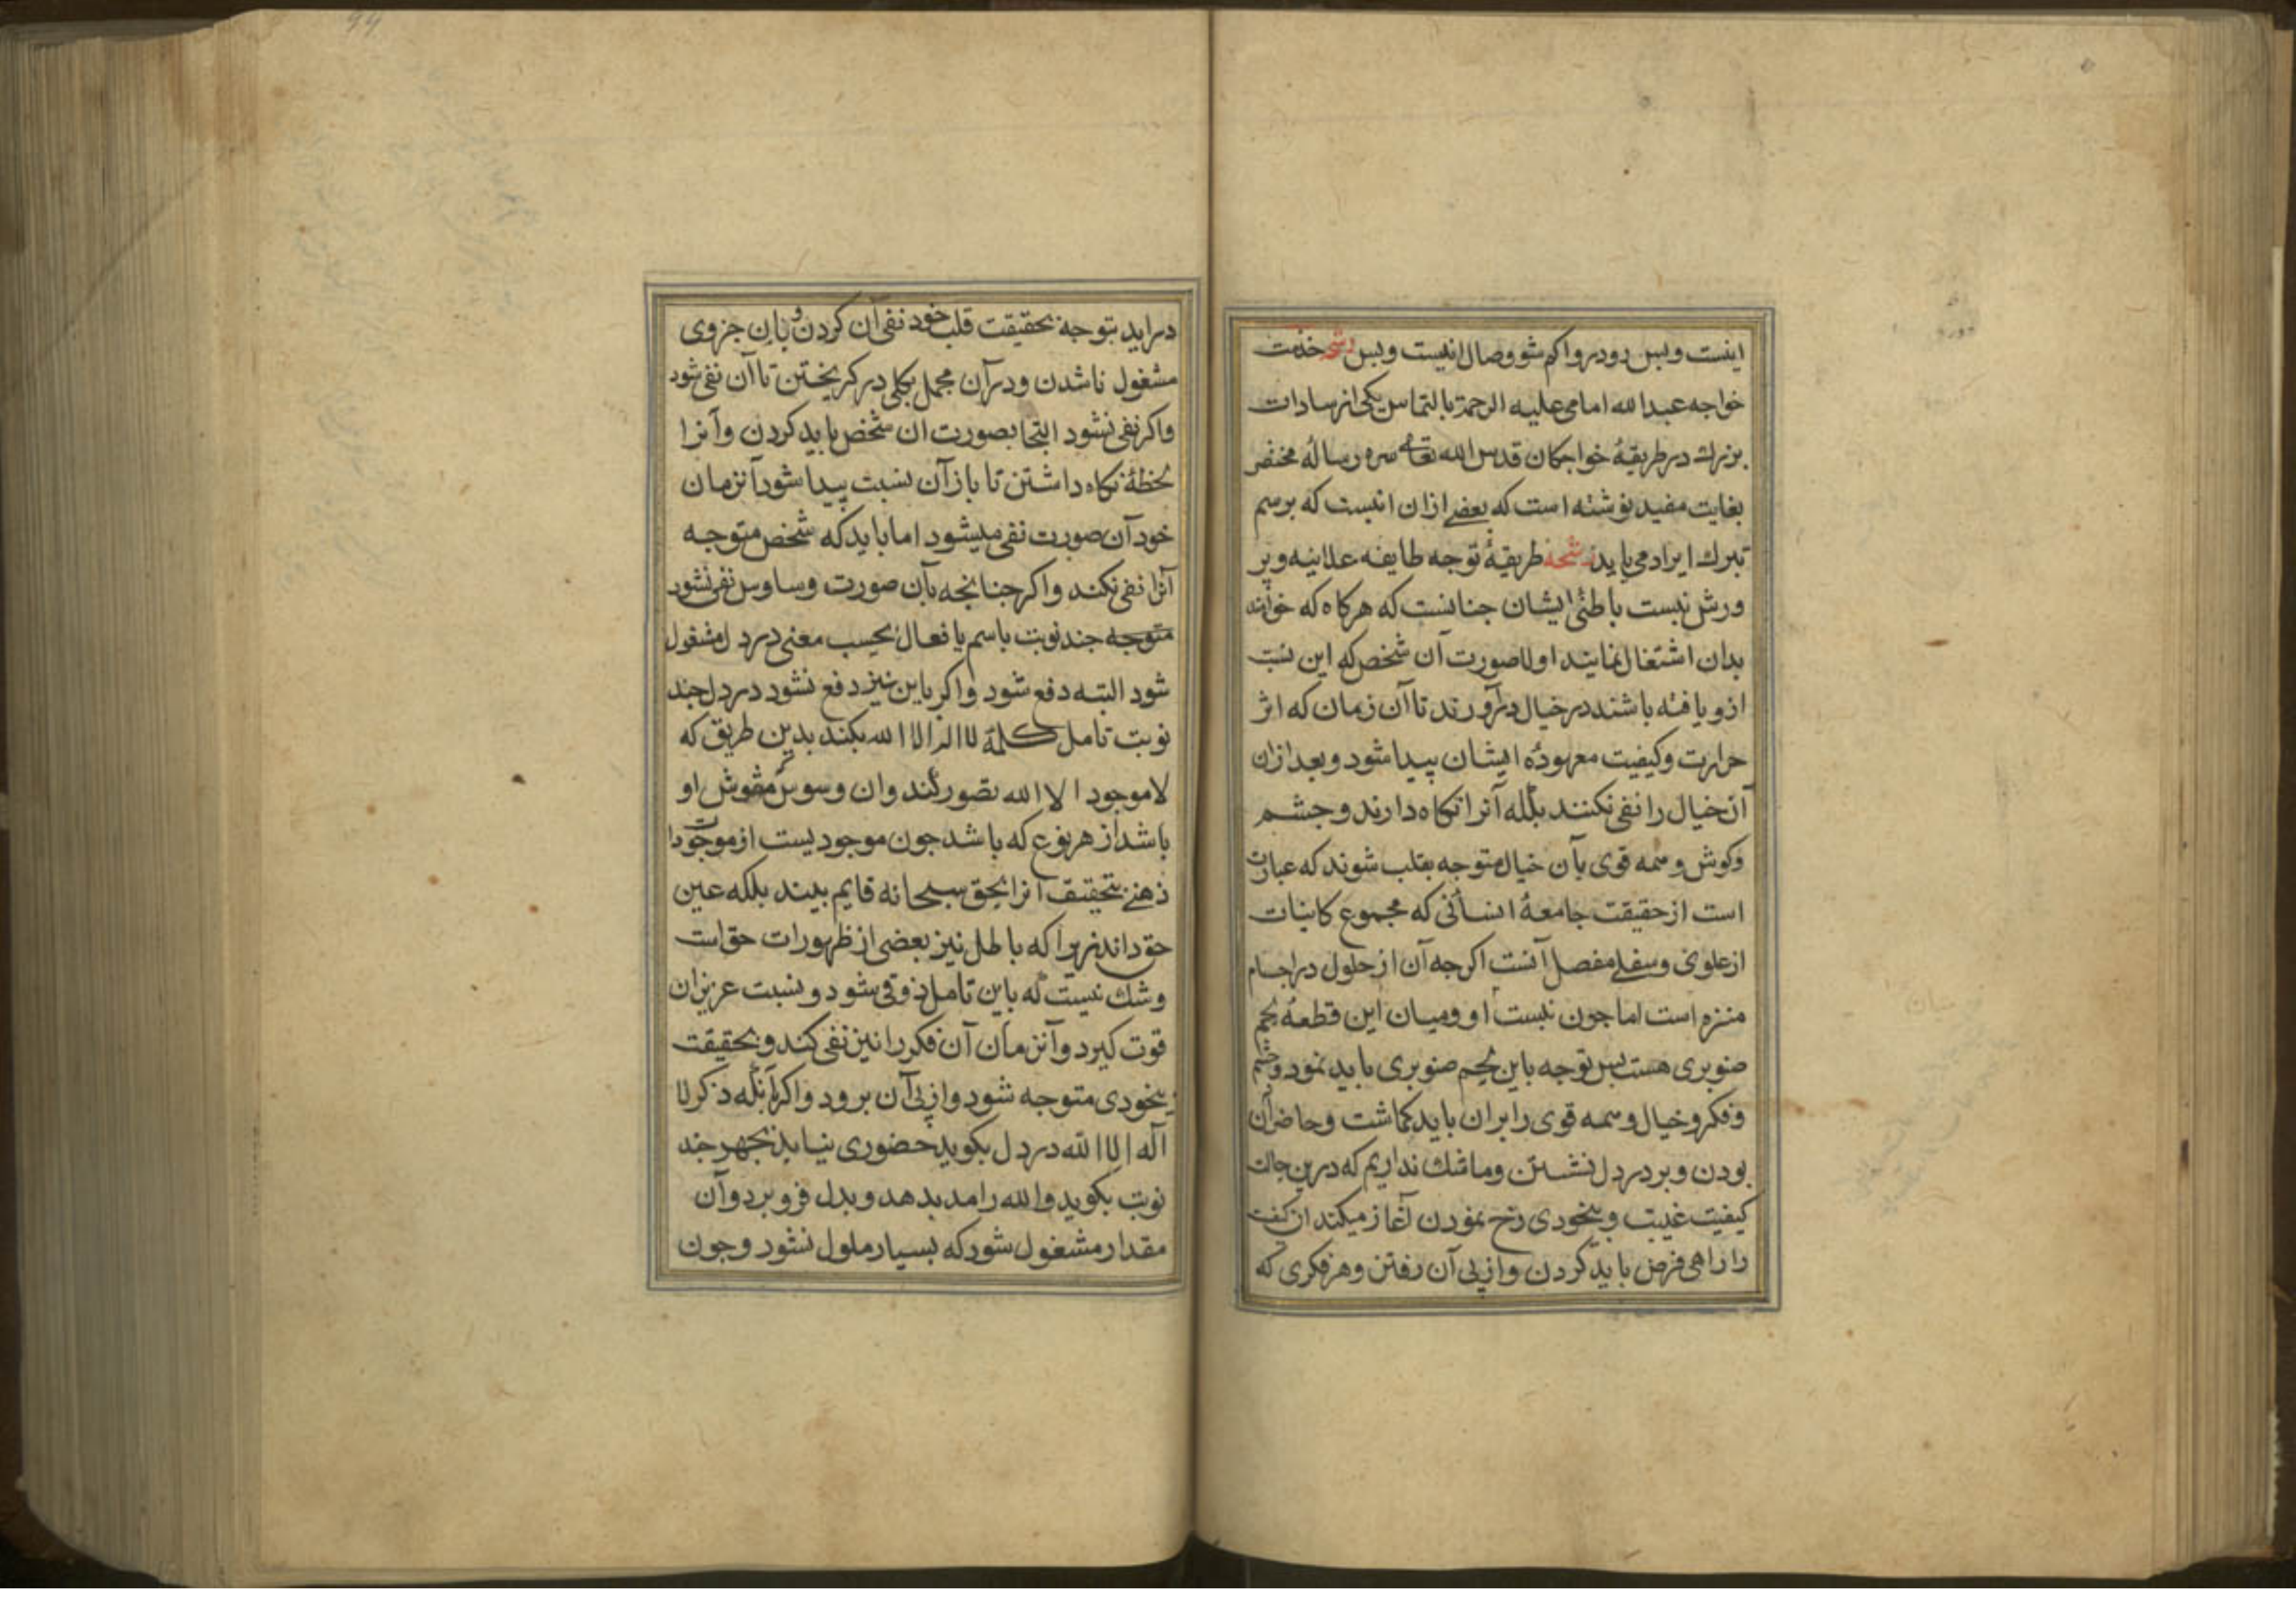 اینست و بس رو درو اکم شو وصال اینست و بس رشحه خدمت
خواجه عبدالله امامی علیه الرحمة بالتماس یکی از سادات
بزرك در طریقهٔ خواجکان قدس الله تعالی سره رسالهٔ مختصر
بغایت مفید نوشته است که بعضی ازان اینست که برسم
تبرك ایراد می یابد رشحه طریقهٔ توجه طایفه علائیه و پر
ورش نسبت باطنئ ایشان جنانست که هرکاه که خواهند
بدان اشتغال نمایند اولا صورت آن شخص که این نسبت
ازو یافته باشند در خیال درآورند تا آن زمان که اثر
حرارت و کیفیت معهودهٔ ایشان پیدا شود و بعد ازان
آن خیال را نفی نکنند بلکه آنرا نکاه دارند و جشم
وکوش و همه قوی بآن خیال متوجه بقلب شوند که عبارت
است از حقیقت جامعهٔ انسانی که مجموع کاینات
از علوی و سفلی مفصل آنست اکرجه آن از حلول در اجسام
منزه است اما جون نسبت او و میان این قطعهٔ لحم
صنوبری هست بس توجه باین لحم صنوبری باید نمود و جشم
و فکر و خیال و همه قوی را بران باید کماشت و حاضر آن
بودن و بر در دل نشستن و ما شك نداریم که درین حالت
کیفیت غیبت و بیخودی رخ نمودن آغاز میکند ان کیفیت
را راهی فرض باید کردن و از پی آن رفتن و هر فکری که
در اید بتوجه بحقیقت قلب خود نفی آن کردن و بان جزوی
مشغول ناشدن و در آن مجمل بکلی در کریختن تا آن نفی شود
واکر نفی نشود التجا بصورت ان شخص باید کردن و آنرا
لحظهٔ نکاه داشتن تا باز آن نسبت پیدا شود آنزمان
خود آن صورت نفی میشود اما باید که شخص متوجه
آنرا نفی نکند و اکر جنانجه بآن صورت وساوس نفی نشود
متوجه جند نوبت باسم یا فعال بحسب معنی در دل مشغول
شود البته دفع شود و اکر باین نیز دفع نشود در دل جند
نوبت تامل کلمهٔ لا اله الا الله بکند بدین طریق که
لا موجود الا الله تصور کند و ان وسوس مشوش او
باشد از هر نوع که باشد جون موجودیست از موجودات
ذهنی بتحقیق آنرا بحق سبحانه قایم بیند بلکه عین
حق داند زیرا که باطل نیز بعضی از ظهورات حق است
و شك نیست که باین تامل ذوقی شود و نسبت عزیزان
قوت کیرد و آنزمان آن فکر را نیز نفی کند و بحقیقت
بیخودی متوجه شود و از پی آن برود و اکر بآنکه ذکر لا
اله الا الله در دل بکوید حضوری نیابد بجهر جند
نوبت بکوید و الله را مد بدهد و بدل فرو برد و آن
مقدار مشغول شود که بسیار ملول نشود و جون